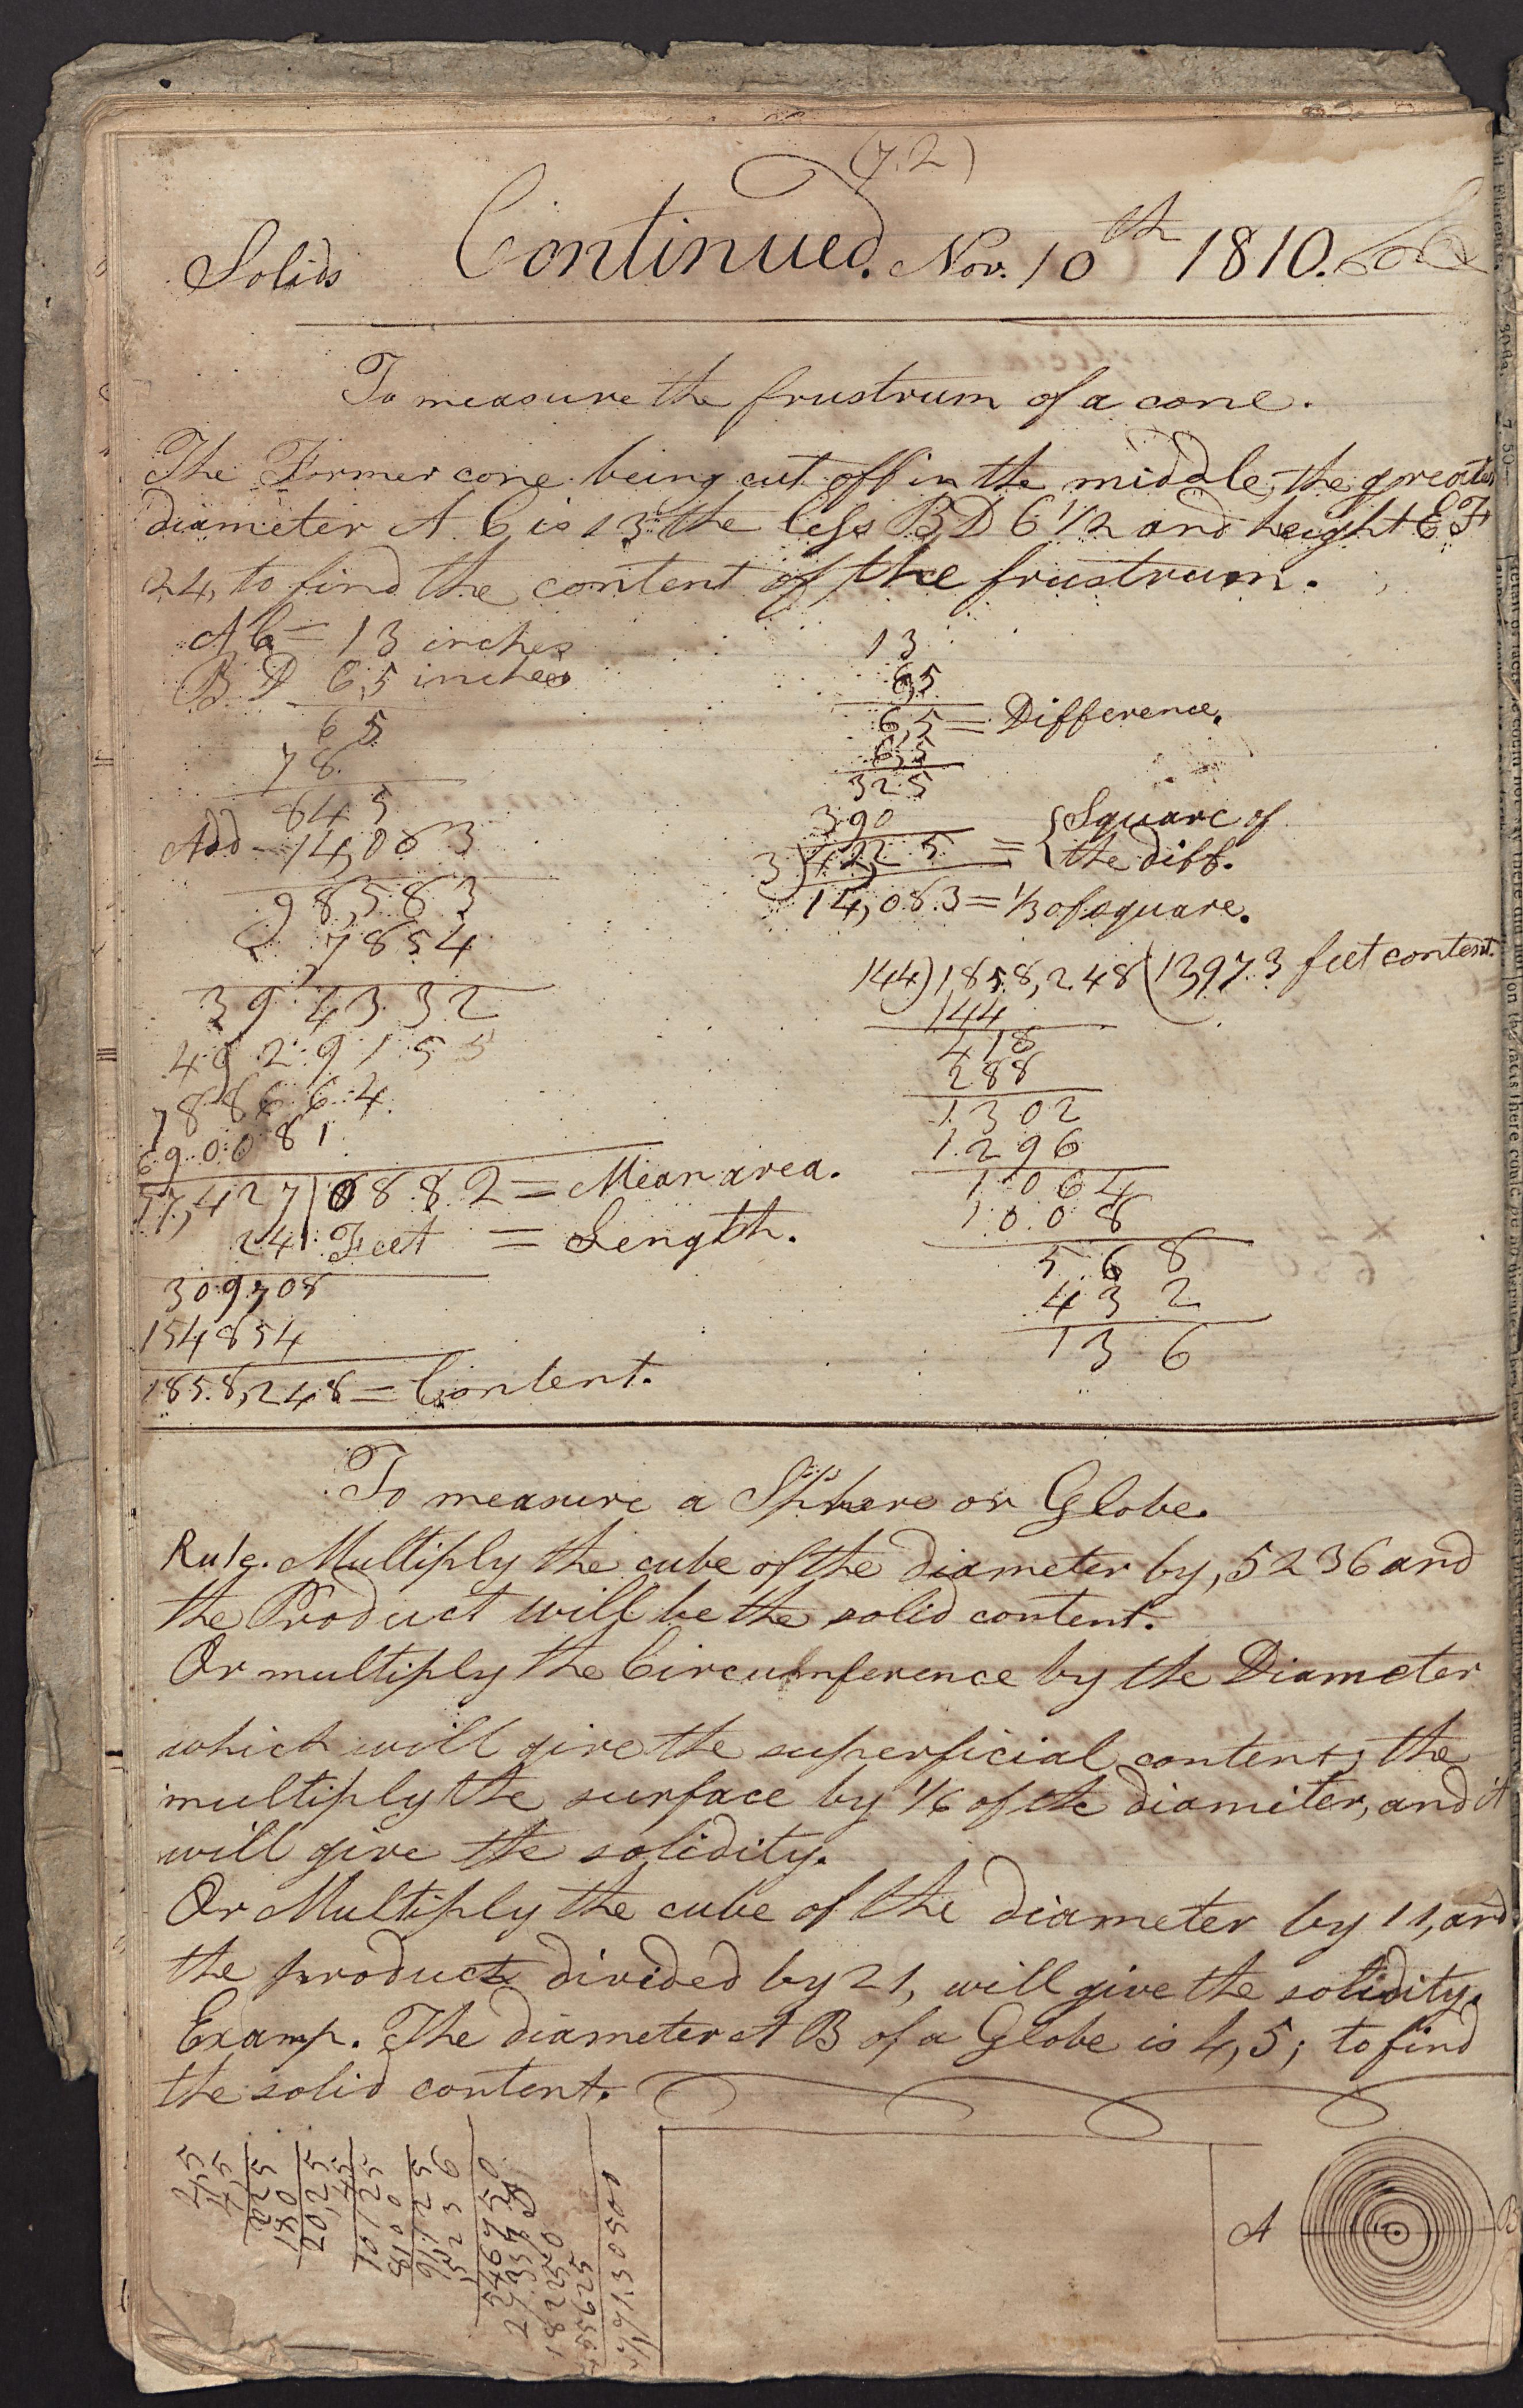 (72)
Solids Continued. Nov. 10th 1810.
To measure the frustrum of a cone.
The Former cone being cut off in the middle, the greater
diameter A C is 13 the less B D 6 1/2 and height E F
24, to find the content of the frustrum.
A C = 13 inches
B D 6,5 inches
65
78
845
Add 14,083
98,583
7854
394332
492915
788664
690081
77,427|0882 = Mean area.
24 Feet = Length.
309708
154854
1858,248 = Content.
13
6,5
6,5 = Difference.
6,5
325
390
3)42,25 = {Square of
the diff.
14,083 = 1/3 of square.
144)1858,248(1397.3 feet content.
144
418
288
1302
1296
1064
1008
568
432
136
To measure a Sphere or Globe.
Rule. Multiply the cube of the diameter by ,5236 and
the Product will be the solid content.
Or multiply the Circumference by the Diameter
which will give the superficial content; the
multiply the surface by 1/6 of the diamiter, and it
will give the solidity.
Or Multiply the cube of the diameter by 11, and
the product divided by 21, will give the solidity.
Examp. The diameter A B of a Globe is 4,5; to find
the solid content.
4,5
4,5
225
180
20,25
4,5
10125
8100
91,125
5236
546750
273375
182250
455625
A
B